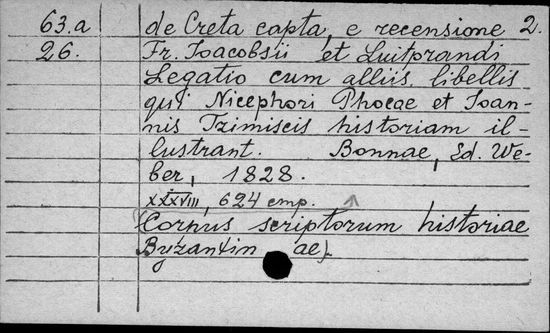 63.a de Creta capta, e recensione 2.
26. Fr. Ioacobsii et Luitprandi
Legatio cum alliis libellis
qui Nicephori Phocae et Ioan-
nis Tzimiscis historiam il-
lustrant. Bonnae, Ed. We-
ber, 1828.
XXXVIII, 624 стр.
(Corpus scriptorum historiae
Byzantin ae).